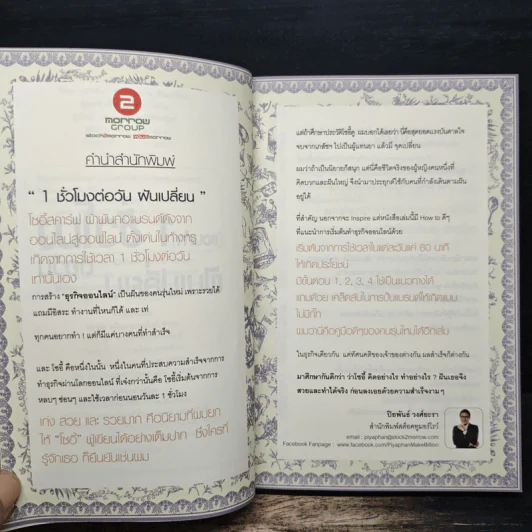 2
morrow
GROUP
stock2morrow wealth2morrow
คำนำสำนักพิมพ์
“ 1 ชั่วโมงต่อวัน ฝันเปลี่ยน ”
โชอี้สคาร์ฟ ผ้าพันคอแบรนด์ดังจาก
ออนไลน์สู่ออฟไลน์ ดังเด่นในห้างหรู
เกิดจากการใช้เวลา 1 ชั่วโมงต่อวัน
เท่านั้นเอง
การสร้าง "ธุรกิจออนไลน์" เป็นฝันของคนรุ่นใหม่ เพราะรวยได้
แถมมีอิสระ ทำงานที่ไหนก็ได้ และ เท่
ทุกคนอยากทำ ! แต่ก็มีแค่บางคนที่ทำสำเร็จ
และ โชอี้ คือหนึ่งในนั้น หนึ่งในคนที่ประสบความสำเร็จจากการ
ทำธุรกิจผ่านโลกออนไลน์ ที่เจ๋งกว่านั้นคือ โชอี้เริ่มต้นจากการ
หลบๆ ซ่อนๆ และใช้เวลาก่อนนอนวันละ 1 ชั่วโมง
เก่ง สวย และ รวยมาก คือนิยามที่ผมยก
ให้ "โชอี้" ผู้เขียนได้อย่างเต็มปาก ซึ่งใครที่
รู้จักเธอ ก็ยืนยันเช่นผม
แต่ถ้าศึกษาประวัติโชอี้ดู ผมบอกได้เลยว่า นี่คือสุดยอดแรงบันดาลใจ
จบจากเภสัชฯ ไปเป็นผู้แทนยา แล้วมี จุดเปลี่ยน
ผมว่าถ้าเป็นนิยายก็สนุก แต่นี่คือชีวิตจริงของผู้หญิงคนหนึ่งที่
คิดบวกและฝันใหญ่ จึงนำมาประยุกต์ใช้กับคนที่กำลังเดินตามฝัน
อยู่ได้
ที่สำคัญ นอกจากจะ Inspire แต่หนังสือเล่มนี้มี How to ดีๆ
ที่แนะนำการเริ่มต้นทำธุรกิจออนไลน์ด้วย
เริ่มต้นจากการใช้เวลาในแต่ละวันแค่ 60 นาที
ให้เกิดประโยชน์
มีขั้นตอน 1, 2, 3, 4 ใช้เป็นแนวทางได้
แถมด้วย เคล็ดลับในการปั้นแบรนด์ให้เกิดแบบ
ไม่มีกั๊ก
ผมว่านี่คือคู่มือดีๆของคนรุ่นใหม่ได้อีกเล่ม
ในธุรกิจเดียวกัน แต่ทัศนคติของเจ้าของต่างกัน ผลสำเร็จก็ต่างกัน
มาศึกษากันดีกว่า ว่าโชอี้ คิดอย่างไร ทำอย่างไร ? ฝันเธอจึง
สวยและทำได้จริง ก่อนลงเอยด้วยความสำเร็จงาม ๆ
ปิยพันธ์ วงศ์ยะรา
สำนักพิมพ์สต็อคทูมอร์โรว์
email : piyaphan@stock2morrow.com
Facebook Fanpage : www.facebook.com/PiyaphanMakeBillion